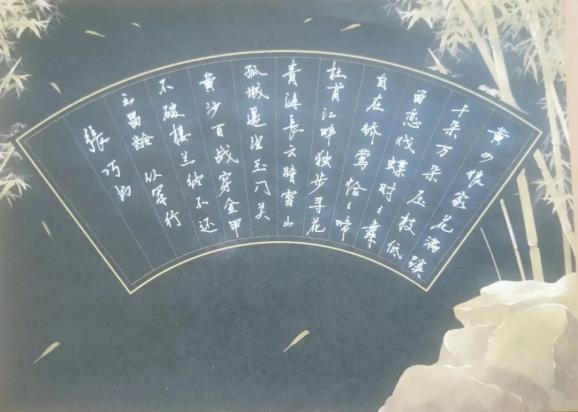 黄四娘家花满蹊
千朵万朵压枝低
留恋戏蝶时々舞
自在娇莺恰々啼
杜甫江畔独步寻花
青海长云暗雪山
孤城遥望玉门关
黄沙百战穿金甲
不破楼兰终不还
王昌龄 从军行
張